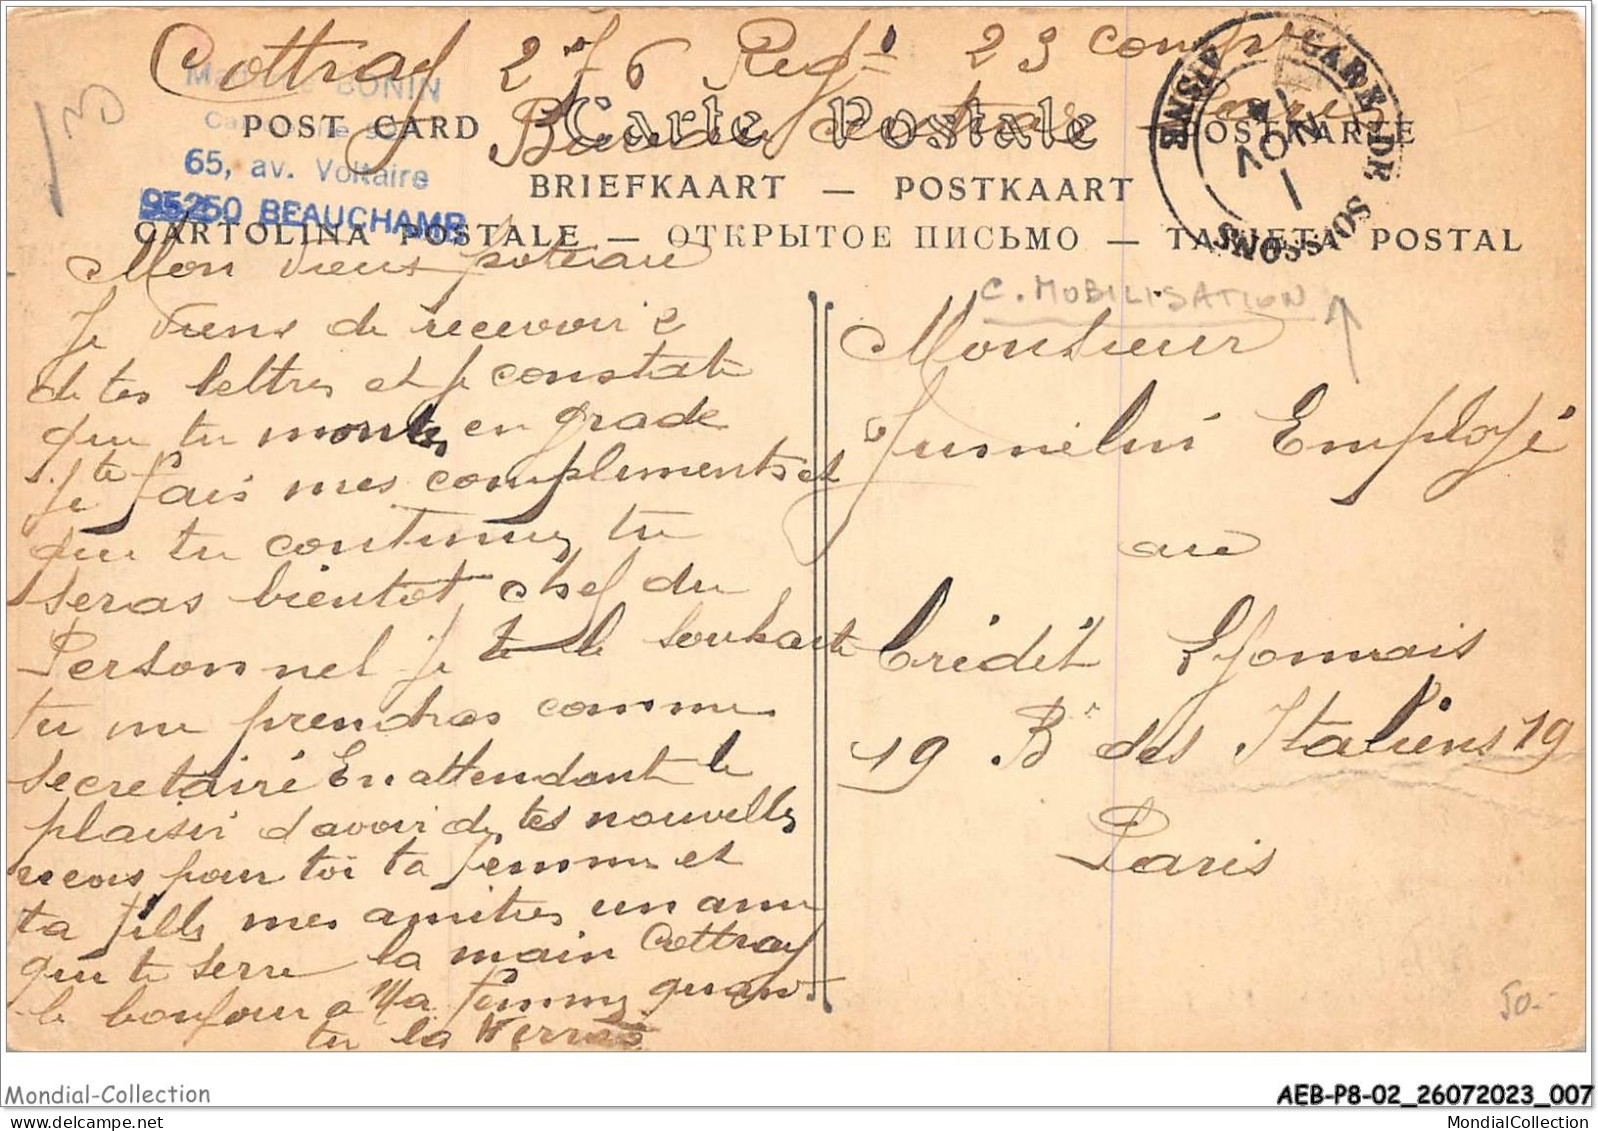 Cottray 276 Regt 23 compie
Bureau central
POST CARD Carte Postale POSTKARTE
BONIN
65, av. Voltaire
95250 BEAUCHAMP
BRIEFKAART — POSTKAART
CARTOLINA POSTALE — ОТКРЫТОЕ ПИСЬМО — TARJETA POSTAL
GARE SOISSONS
1 NOV
C. MOBILISATION
Mon vieux poteau
Je viens de recevoir 2
de tes lettres et je constate
que tu montes en grade
Je te fais mes compliments et
que tu continues tu
seras bientot chef du
Personnel je te le souhaite
tu me prendras comme
secretaire En attendant le
plaisir d avoir de tes nouvelles
recois pour toi ta femme et
ta fille mes amities un ami
qui te serre la main Cottray
le bonjour a Ma femme quant
tu la verras
Monsieur
Jumelin Employé
au
Crédit Lyonnais
19 Bd des Italiens 19
Paris
50.-
Mondial-Collection
AEB-P8-02_26072023_007
MondialCollection